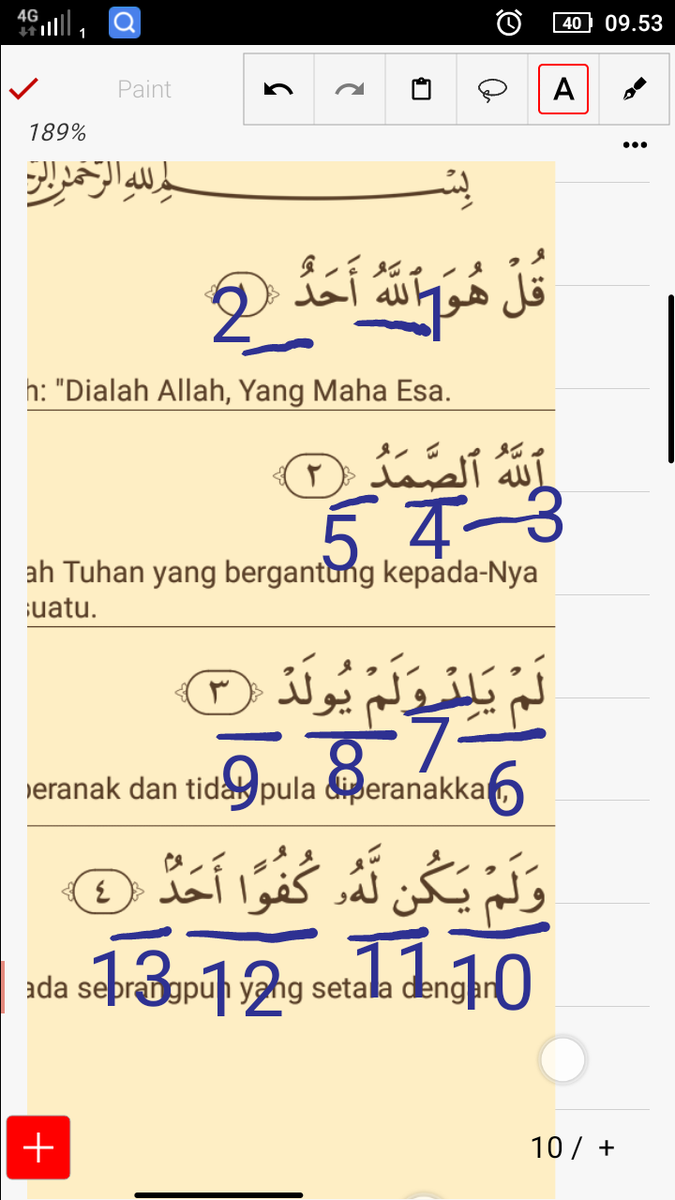 4G 1 40 09.53
Paint A
189%
بِسْمِ ٱللَّهِ ٱلرَّحْمَٰنِ
قُلْ هُوَ ٱللَّهُ أَحَدٌ ١
2 1
h: "Dialah Allah, Yang Maha Esa.
ٱللَّهُ ٱلصَّمَدُ ٢
5 4 3
ah Tuhan yang bergantung kepada-Nya
suatu.
لَمْ يَلِدْ وَلَمْ يُولَدْ ٣
9 8 7 6
beranak dan tidak pula diperanakkan,
وَلَمْ يَكُن لَّهُۥ كُفُوًا أَحَدٌۢ ٤
13 12 11 10
ada seorangpun yang setara dengan
10 / +